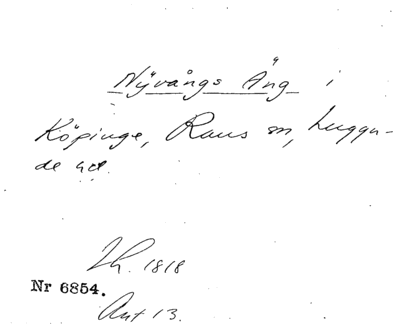 Nÿvångs Äng i
Köpinge, Raus sn, Luggu-
de hd.
Lh. 1818
Nr 6854.
Akt 13.